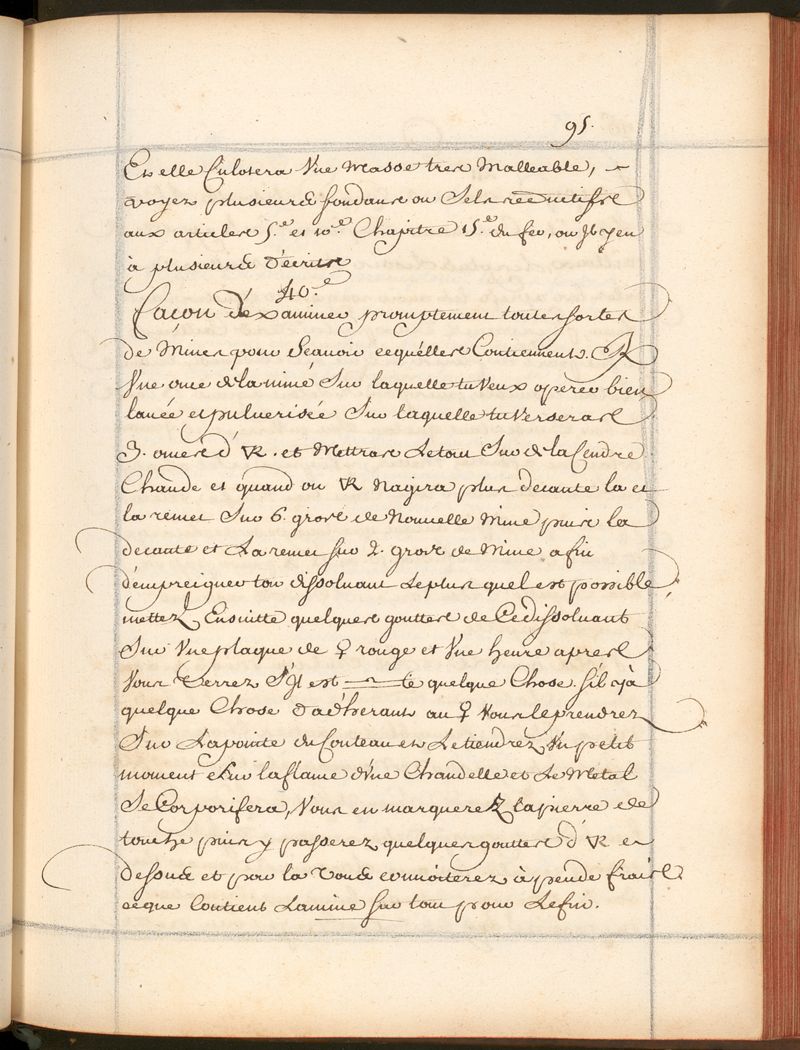 95.
Et elle Culotera Vne Masse tres Malleable,
voyez plusieurs fondans ou Sels reductifs
aux articles 5.e et 10.e Chapitre 15.e du feu, ou Jl y en
à plusieurs d'écrits
40.e
Façon d'examiner promptement toutes sortes
de Mines pour Scauoir cequ'elles Contiennents. ℞
Vne once de la mine Sur laquelle tu Veux operer bien
lauée et puluerisée Sur laquelle tu Verseras
3. onces d' 🜆. et Mettras Le tout Sur de la Cendre
Chaude et quand ou 🜆 N'agira plus decante la et
la remet Sur 6. gros de Nouuelle Mine puis la
decante et La remet sur 2. gros de Mine afin
d'empreigner ton dissoluant Le plus quel est possible,
mettez Ensuitte quelques gouttes de Ce dissoluant
Sur Vne plaque de ♀ rouge et Vne heure apres
Vous Verrez S'Jl est quelque Chose. s'il ÿ à
quelque Chose d'adherants au ♀ Vous le prendrez
Sur La pointe du Couteau et Le tiendrez Vn petit
moment Sur la flame d'Vne Chandelle et Le Metal
Se Corporifera, Vous en marquerez la pierre de
touche puis y passerez quelques gouttes d' 🜆 et
dessus et par la Vous connoiterez à peu de frais
ce que Contient La mine sur tout pour Le fin.